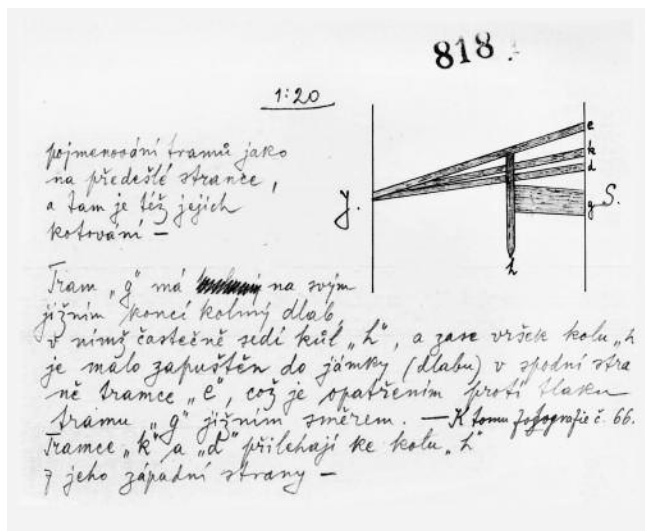 818
1:20
pojmenování tramů jako
na předešlé strance,
a tam je též jejich
kotování —
e
k
d
g
J.
S.
h
Tram „g" má na svým
jižním konci kolmý dlab,
v nimž častečně sedí kůl „h", a zase vršek kolu „h
je malo zapuštěn do jámky (dlabu) v spodní stra
ně tramce „e", což je opatřením proti tlaku
tramu „g" jižním směrem. — K tomu fotografie č. 66.
Tramce „k" a „d" přilehají ke kolu „h"
z jeho západní strany —